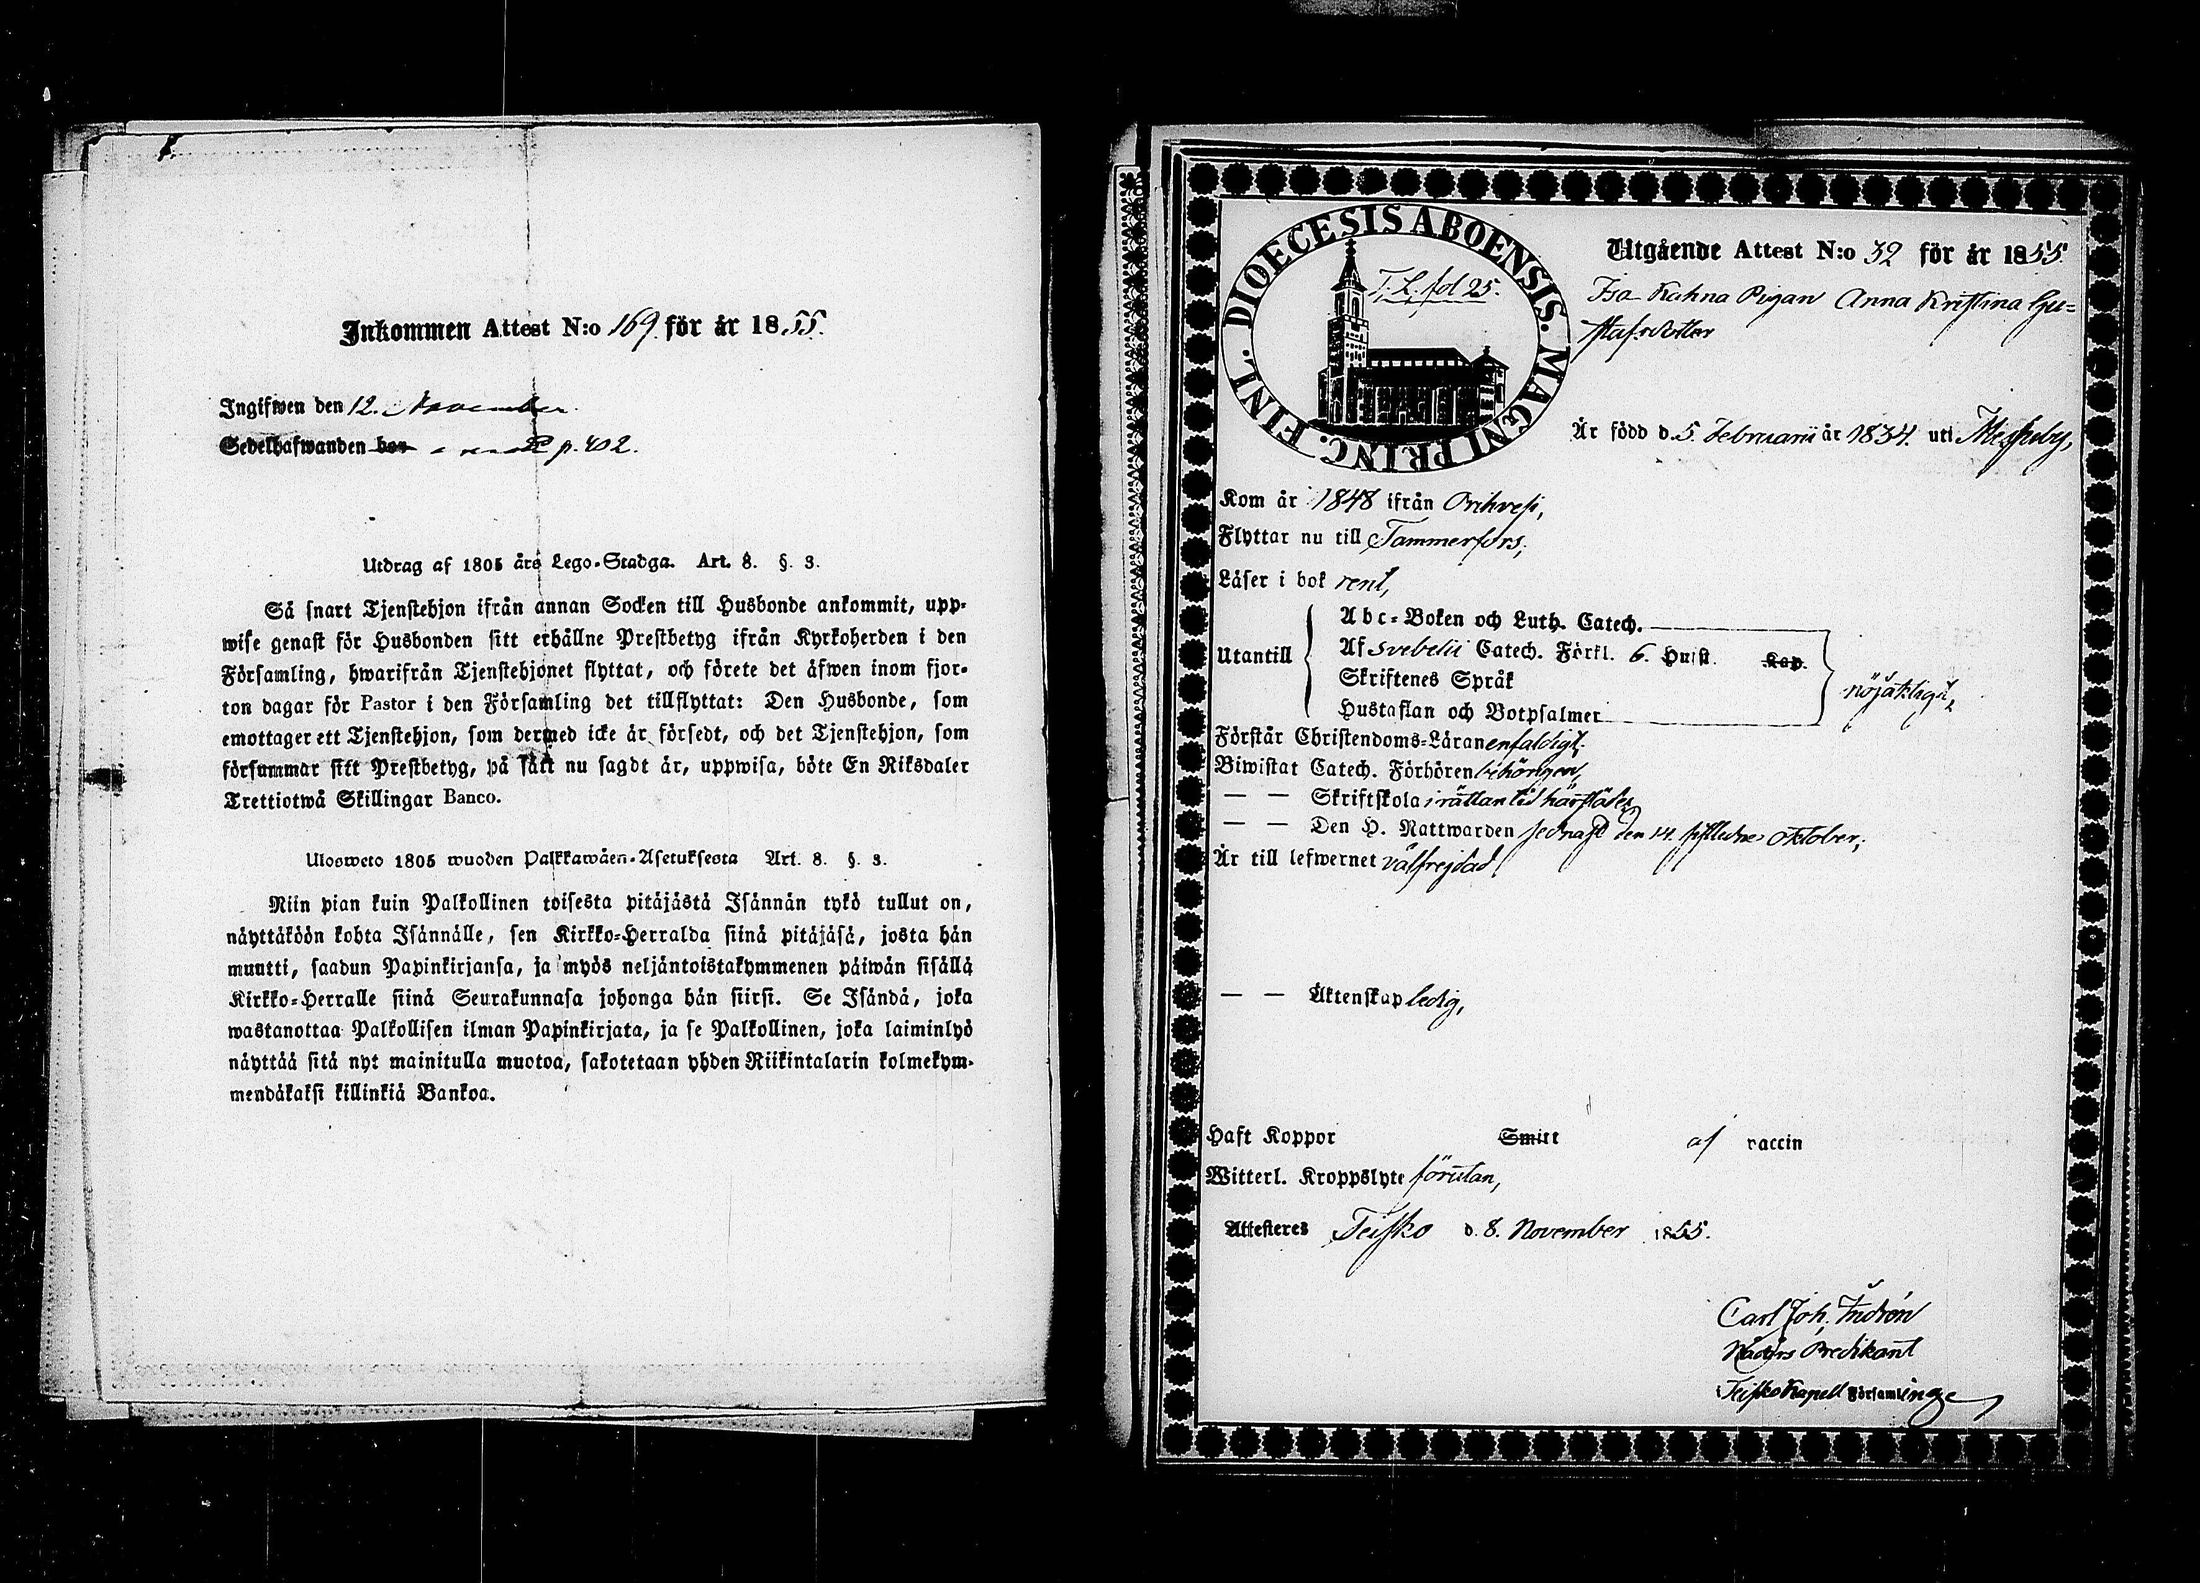 Inkommen Attest N:o 169. för år 1855.
Ingifwen den 12. November.
Sedelhafwanden bor p. 402.
Utdrag af 1805 års Lego-Stadga. Art. 8. §. 3.
Så snart Tjenstehjon ifrån annan Socken till Husbonde ankommit, upp-
wise genast för Husbonden sitt erhållne Prestbetyg ifrån Kyrkoherden i den
Församling, hwarifrån Tjenstehjonet flyttat, och förete det äfwen inom fjor-
ton dagar för Pastor i den Församling det tillflyttat: Den Husbonde, som
emottager ett Tjenstehjon, som dermed icke är försedt, och det Tjenstehjon, som
försummar sitt Prestbetyg, på sätt nu sagdt är, uppwisa, böte En Riksdaler
Trettiotwå Skillingar Banco.
Ulosweto 1805 wuoden Palkkawäen-Asetuksesta Art. 8. §. 3.
Niin pian kuin Palkollinen toisesta pitäjästä Isännän tykö tullut on,
näyttäköön kohta Isännälle, sen Kirkko-Herralda siinä pitäjäsä, josta hän
muutti, saadun Papinkirjansa, ja myös neljäntoistakymmenen päiwän sisällä
Kirkko-Herralle siinä Seurakunnasa johonga hän siirsi. Se Isändä, joka
wastanottaa Palkollisen ilman Papinkirjata, ja se Palkollinen, joka laiminlyö
näyttää sitä nyt mainitulla muotoa, sakotetaan yhden Riikintalarin kolmekym-
mendäkaksi killinkiä Bankoa.
DIOECESIS ABOENSIS. MAGNI PRINC. FINL.
T. L. fol 25.
Utgående Attest N:o 32 för år 1855.
Isa Kahna Pigan Anna Kristina Gu-
stafsdotter
Är född d. 5. Februarii år 1834. uti Messuby,
Kom år 1848 ifrån Orihvesi,
Flyttar nu till Tammerfors,
Läser i bok rent,
Utantill
Abc-Boken och Luth. Catech.
Af Svebelii Catech. Förkl. 6. Hufst. Kap.
Skriftenes Språk
Hustaflan och Botpsalmer
nöjaktigt,
Förstår Christendoms-Läran enfaldigt,
Biwistat Catech. Förhören behörigen,
— — Skriftskola i rättan tid härstädes,
— — Den H. Nattwarden sednast den 14. sistledne oktober,
Är till lefwernet välfrejdad,
— — Äktenskap ledig,
Haft Koppor Smitt af vaccin
Witterl. Kroppslyte förutan,
Attesteres Teisko d. 8. November 1855.
Carl Joh.
Nådårs Predikant
Teisko Kapell Församlinge